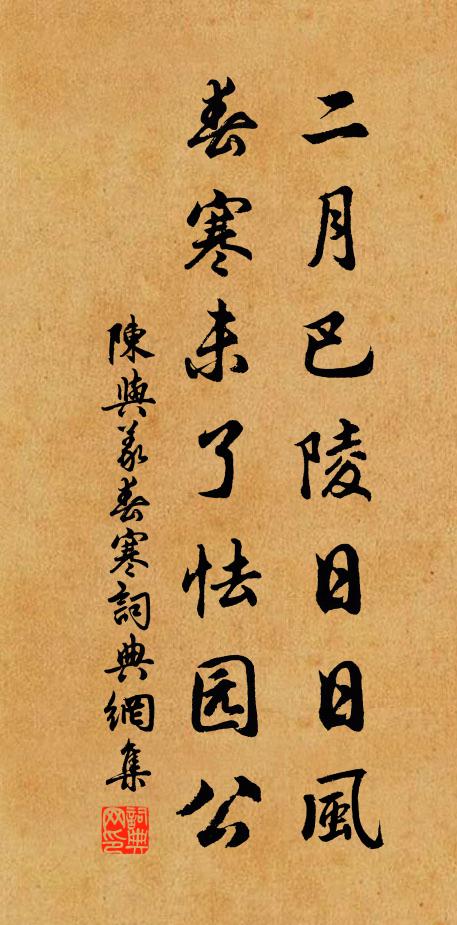 二月巴陵日日風
春寒未了怯园公
陳與義春寒詞典網集
詞典网印